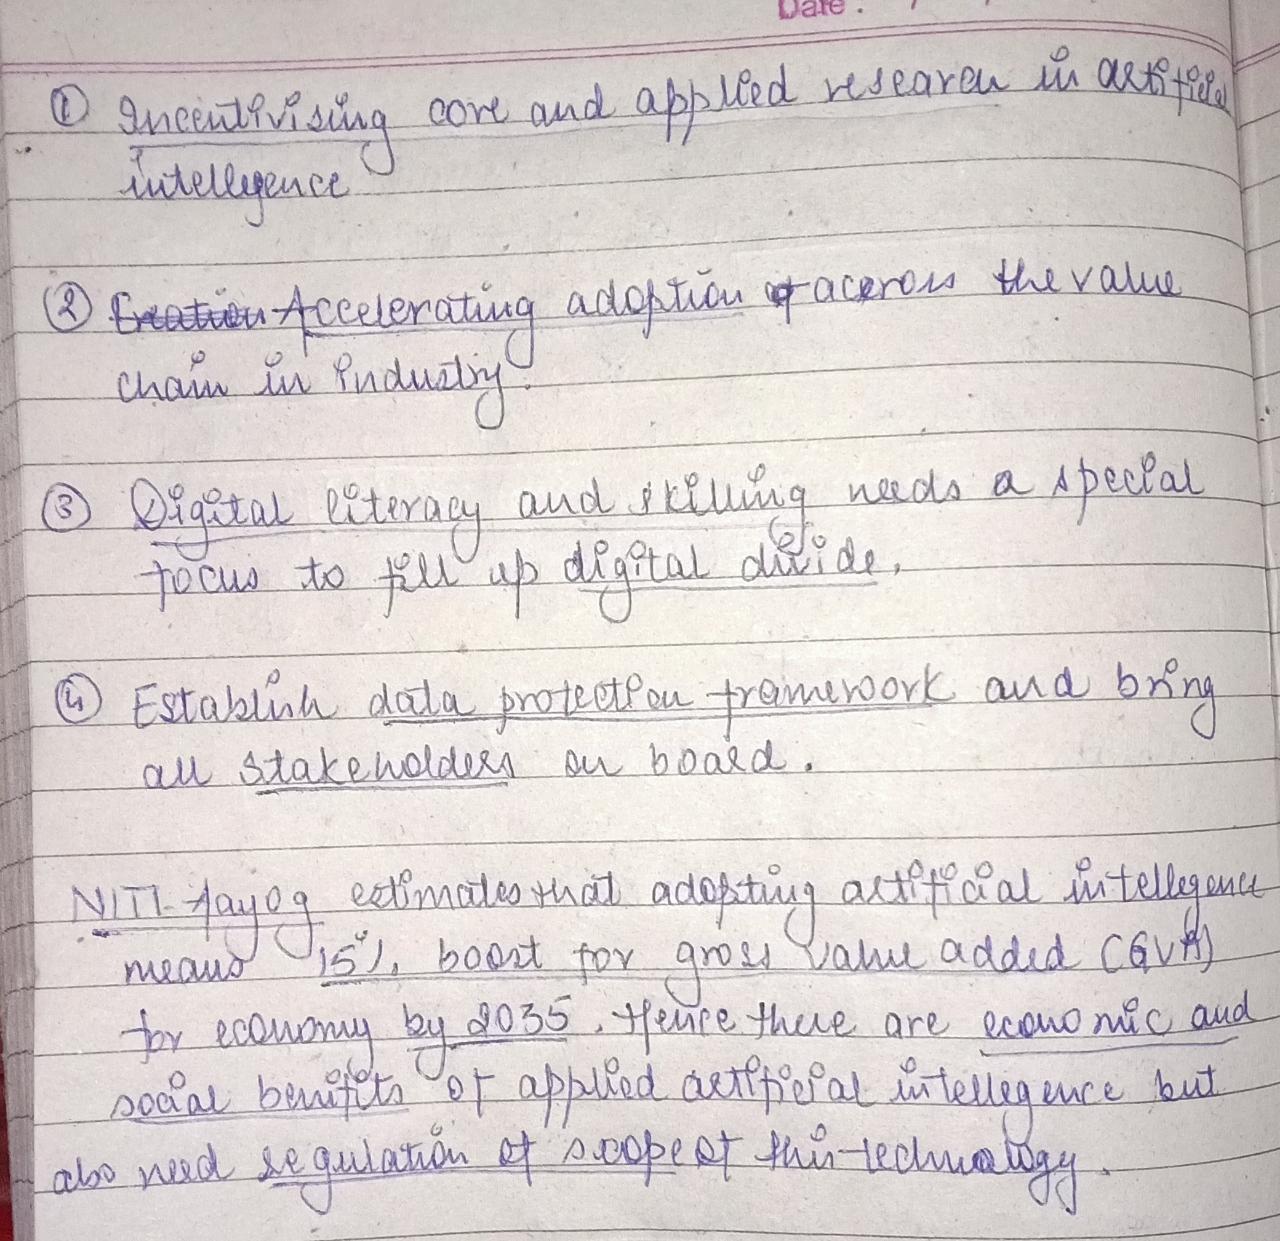 Date :
① Incentivising core and applied research in artificial
intellegence
② Creation Accelerating adoption of acorss the value
chain in industry.
③ Digital literacy and skilling needs a special
focus to fill up digital divide.
④ Establish data protection framework and bring
all stakeholders on board.
NITI-Aayog estimates that adopting artificial intellegence
means 15% boost for gross value added (GVA)
for economy by 2035. Hence there are economic and
social benifits of applied artificial intellegence but
also need regulation of scope of this technology.